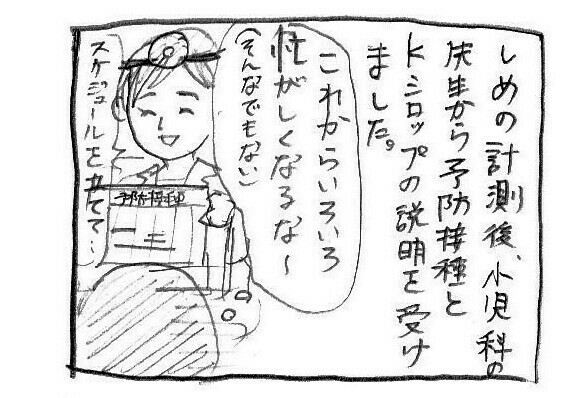 しめの計測後、小児科の
先生から予防接種と
Kシロップの説明を受け
ました。
これからいろいろ
忙がしくなるな～
(そんなでもない)
予防接種
スケジュールを立てて…